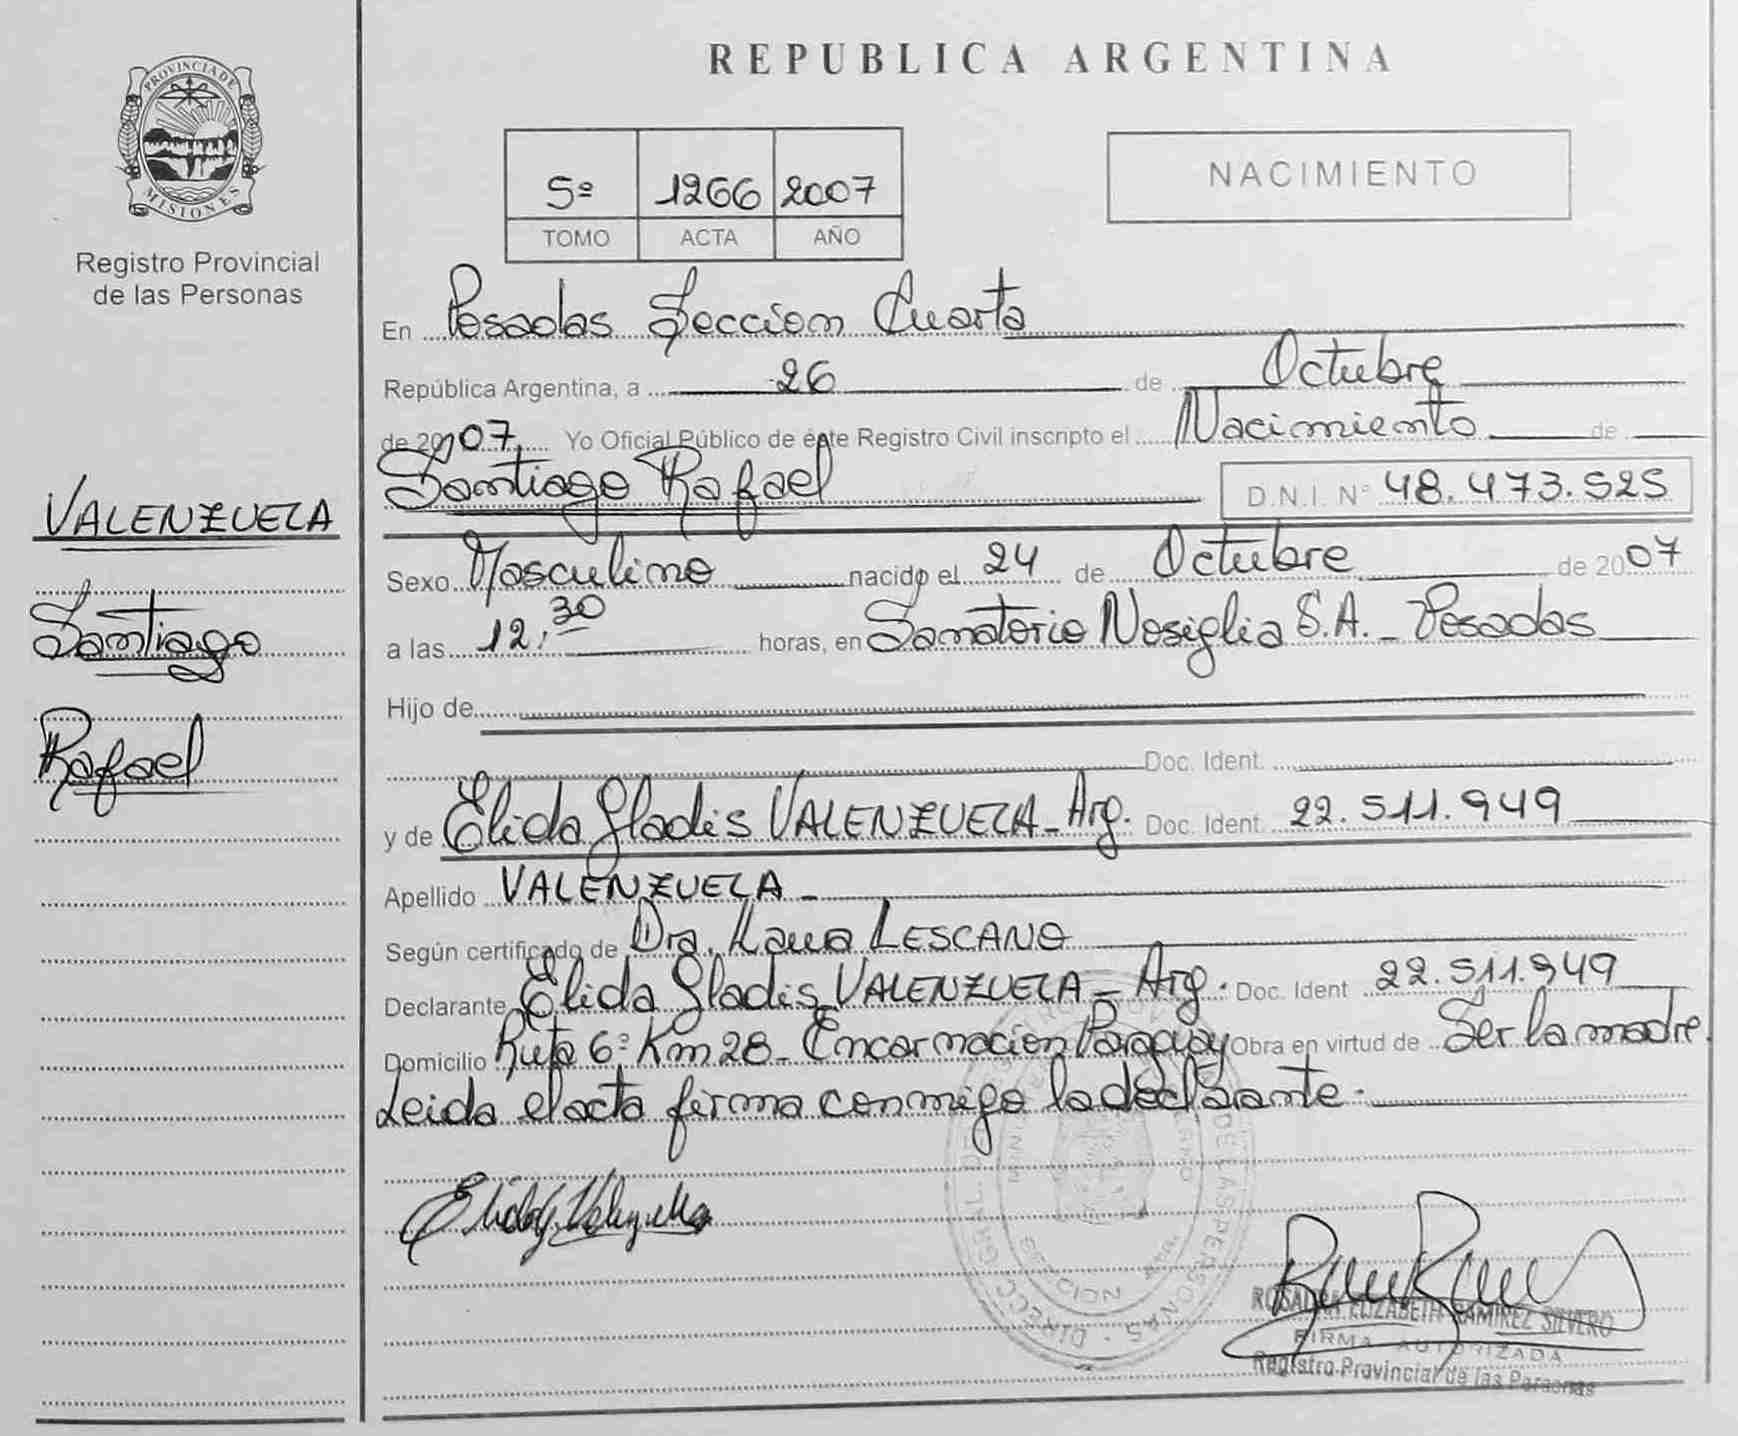 PROVINCIA DE
MISIONES
Registro Provincial
de las Personas
VALENZUELA
Santiago
Rafael
REPUBLICA ARGENTINA
5º 1266 2007
TOMO ACTA AÑO
NACIMIENTO
En Posadas Seccion Cuarta
República Argentina, a 26 de Octubre
de 2007 Yo Oficial Público de éste Registro Civil inscripto el Nacimiento de
Santiago Rafael D.N.I. Nº 48.473.525
Sexo Masculino nacido el 24 de Octubre de 2007
a las 12:30 horas, en Sanatorio Nosiglia S.A. - Posadas
Hijo de
Doc. Ident.
y de Elida Gladis VALENZUELA - Arg. Doc. Ident. 22.511.949
Apellido VALENZUELA -
Según certificado de Dra. LESCANO
Declarante Elida Gladis VALENZUELA - Arg. Doc. Ident 22.511.949
Domicilio Ruta 6º Km 28 - Encarnacion Paraguay Obra en virtud de Ser la madre.
Leida el acta firma conmigo la declarante.
DIRECC. GRAL. DE LAS PERSONAS
ELIZABETH RAMIREZ SILVERO
FIRMA AUTORIZADA
Registro Provincial de las Personas